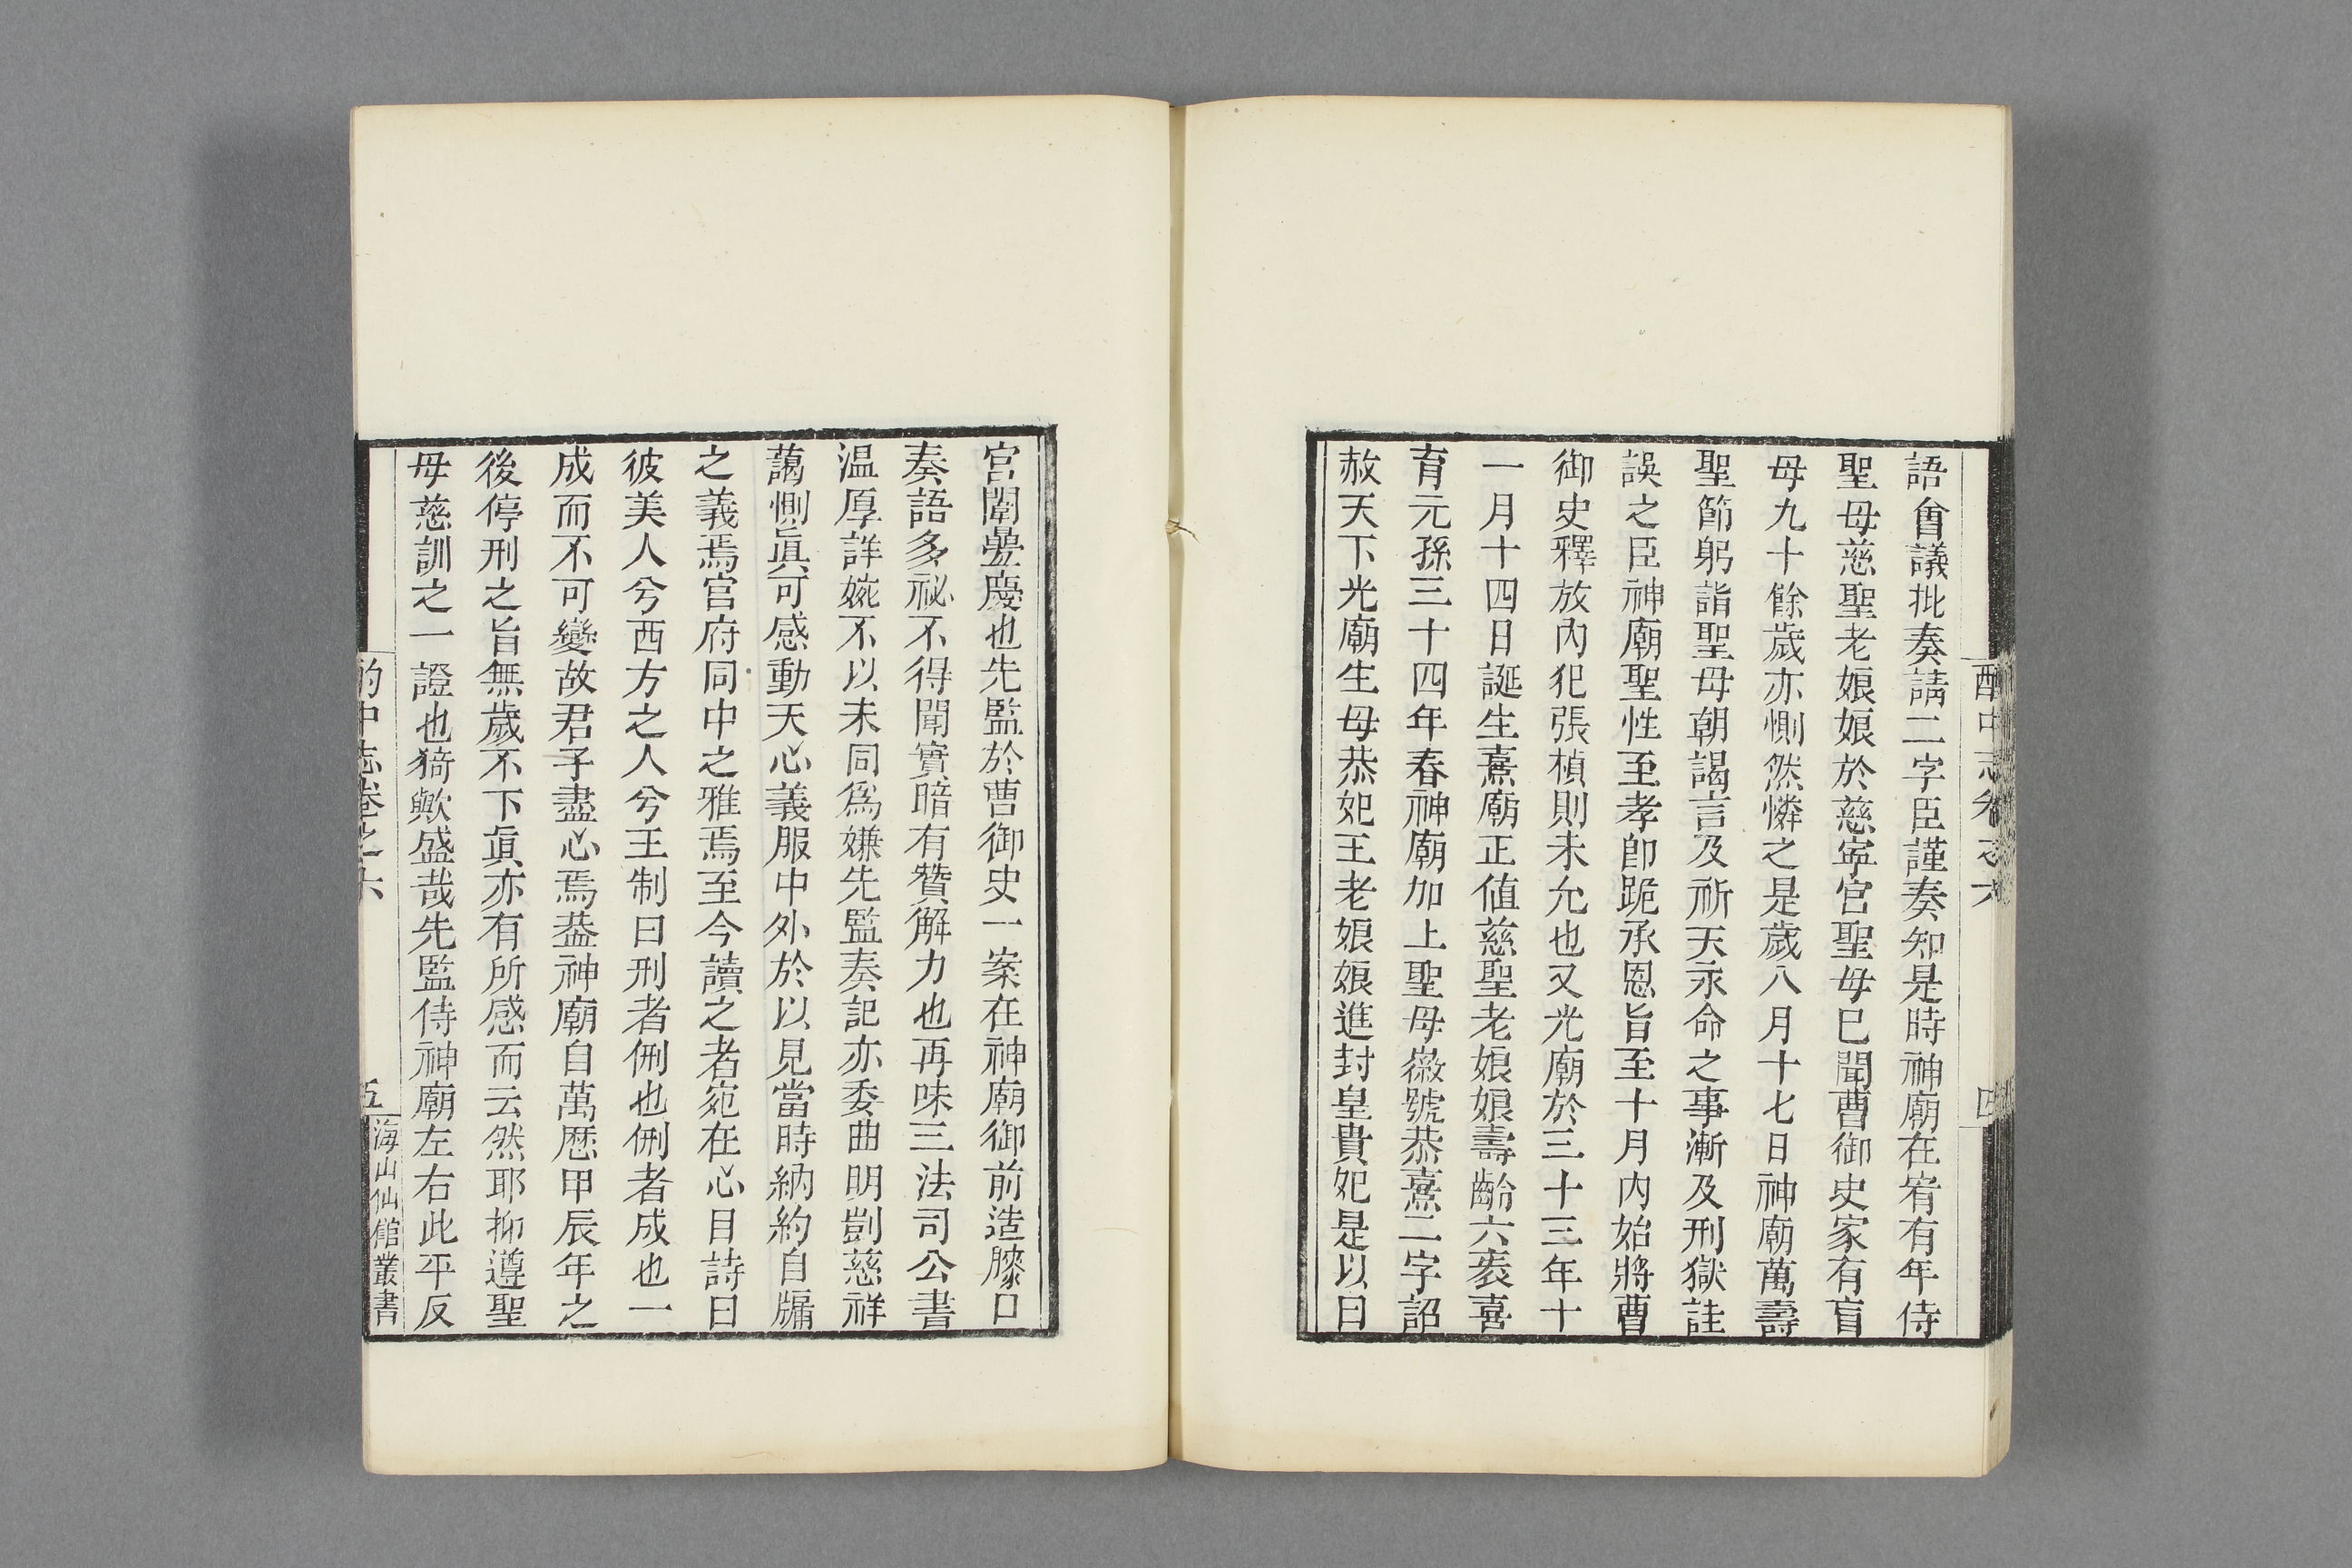 酌中志卷之六
四
語會議批奏請二字臣謹奏知是時神廟在宥有年侍
聖母慈聖老娘娘於慈寧宮聖母已聞曹御史家有盲
母九十餘歲亦惻然憐之是歲八月十七日神廟萬壽
聖節躬詣聖母朝謁言及祈天永命之事漸及刑獄詿
誤之臣神廟聖性至孝卽跪承恩旨至十月內始將曹
御史釋放內犯張楨則未允也又光廟於三十三年十
一月十四日誕生熹廟正值慈聖老娘娘壽齡六袠喜
育元孫三十四年春神廟加上聖母徽號恭熹二字詔
赦天下光廟生母恭妃王老娘娘進封皇貴妃是以日
宮闈疊慶也先監於曹御史一案在神廟御前造膝口
奏語多祕不得聞實暗有贊解力也再味三法司公書
温厚詳婉不以未同爲嫌先監奏記亦委曲明剴慈祥
藹惻眞可感動天心義服中外於以見當時納約自牖
之義焉宮府同中之雅焉至今讀之者宛在心目詩曰
彼美人兮西方之人兮王制曰刑者侀也侀者成也一
成而不可變故君子盡心焉葢神廟自萬厯甲辰年之
後停刑之旨無歲不下眞亦有所感而云然耶抑遵聖
母慈訓之一證也猗歟盛哉先監侍神廟左右此平反
酌中志卷之六
五
海山仙館叢書